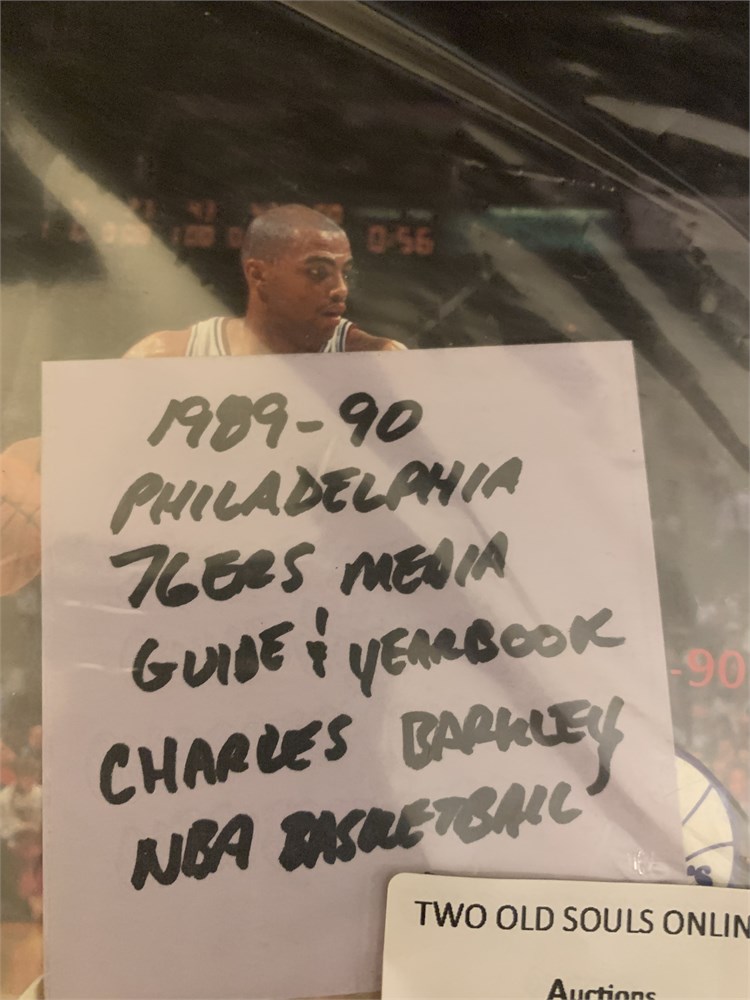 0:56
1989-90
PHILADELPHIA
76ERS MEDIA
GUIDE & YEARBOOK
-90
CHARLES BARKLEY
NBA BASKETBALL
TWO OLD SOULS ONLIN
Auctions